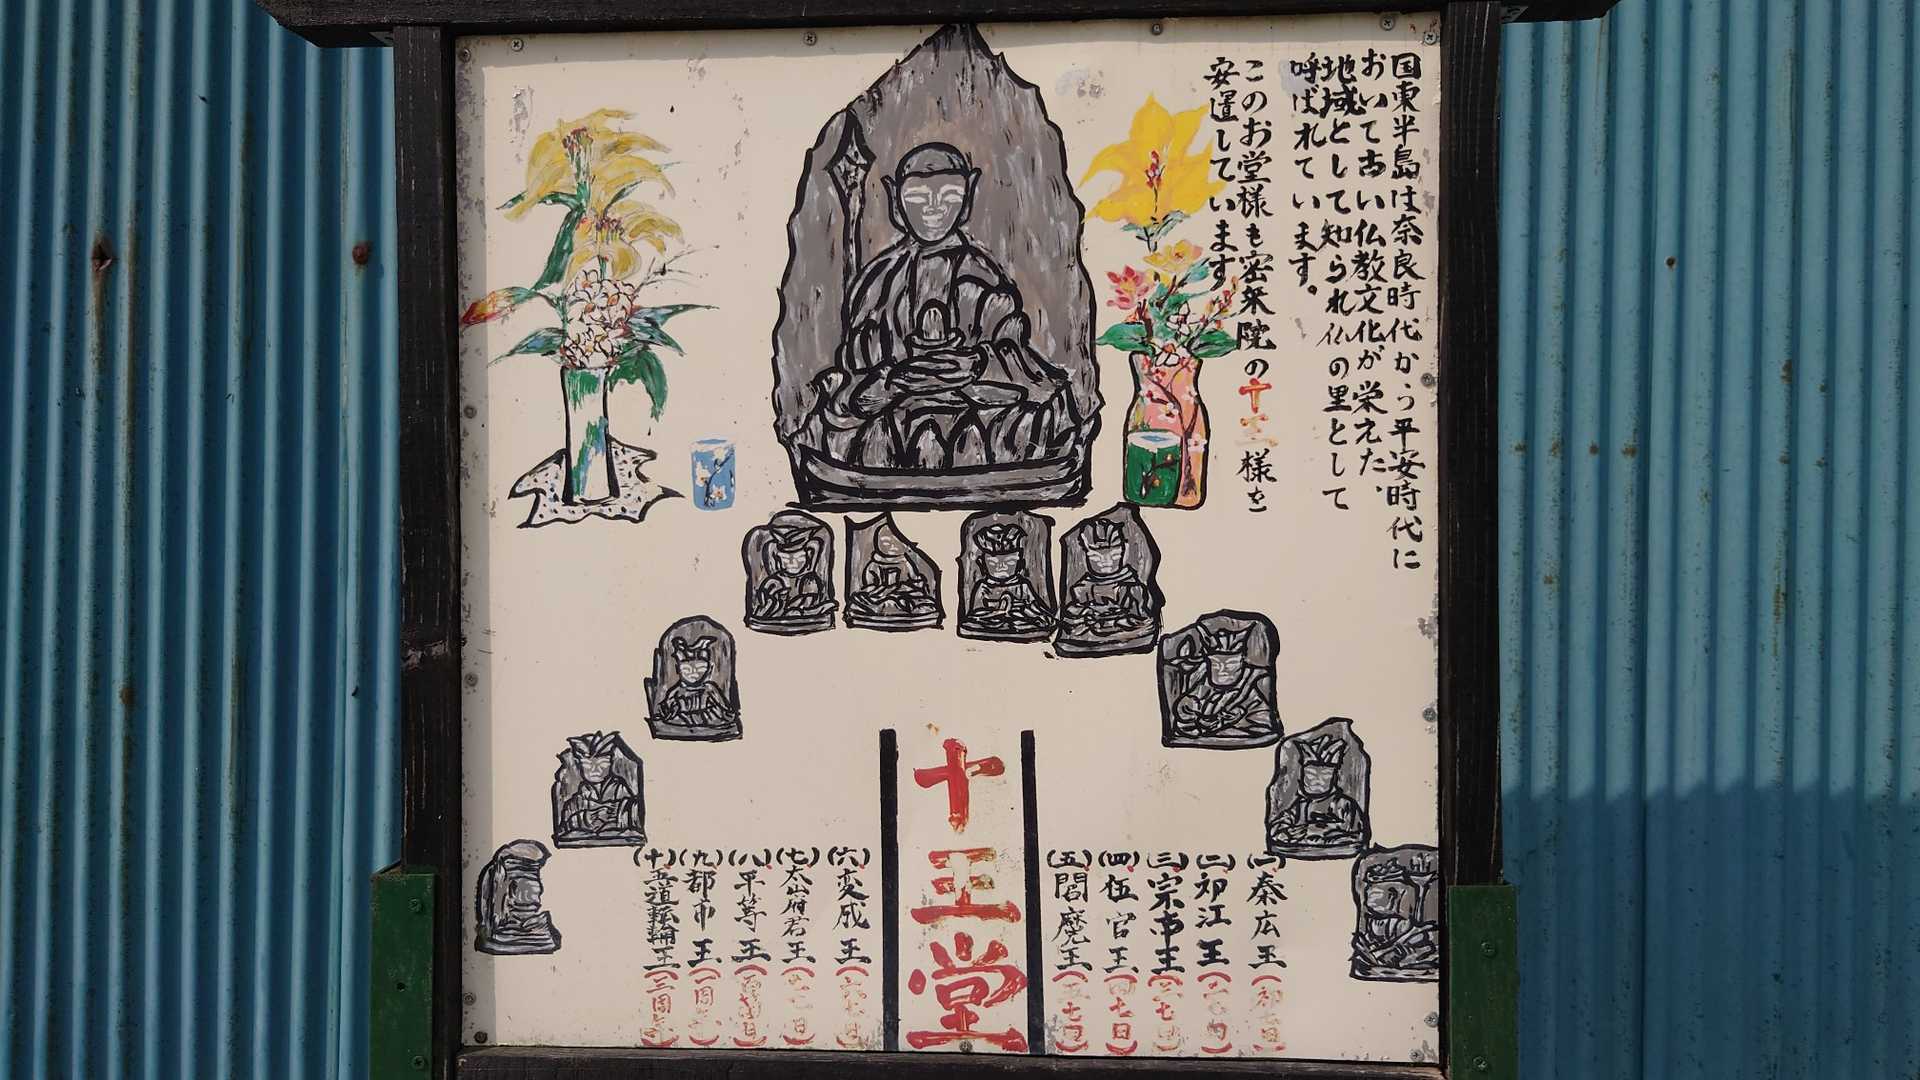 国東半島は奈良時代から平安時代に
おいて古い仏教文化が栄えた、
地域として知られ仏の里として
呼ばれています。
このお堂様も密乗院の十王様を
安置しています。
十王堂
(一)秦広王(初七日)
(二)初江王(二七日)
(三)宗帝王(三七日)
(四)伍官王(四七日)
(五)閻魔王(五七日)
(六)変成王(六七日)
(七)太山府君王(七七日)
(八)平等王(百ヶ日)
(九)都市王(一周年)
(十)五道転輪王(三周年)